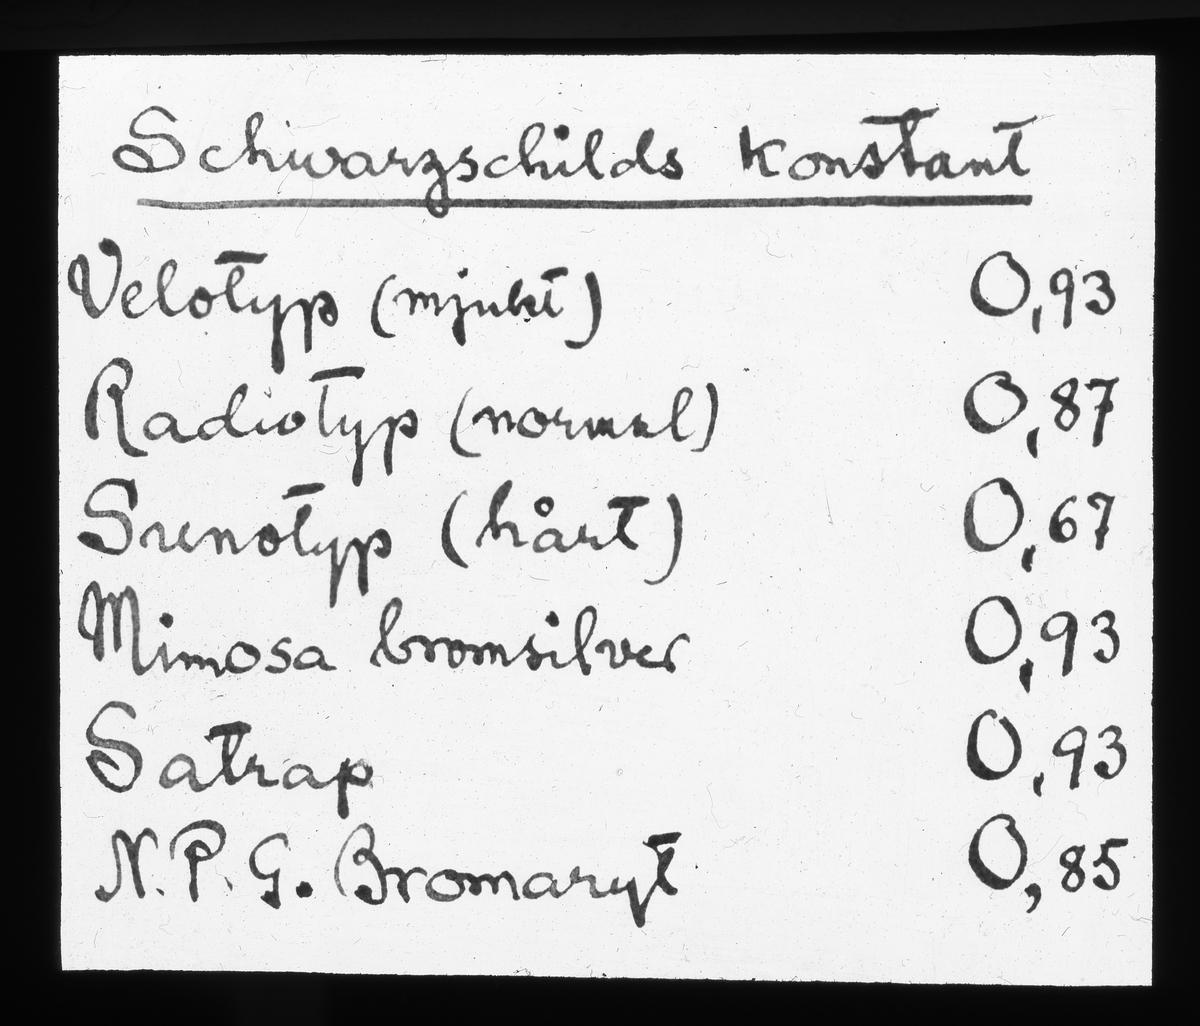 Schwarzschilds konstant
Velotyp (mjukt) 0,93
Radiotyp (normal) 0,87
Sunotyp (hårt) 0,67
Mimosa bromsilver 0,93
Satrap 0,93
N.P.G. Bromaryt 0,85